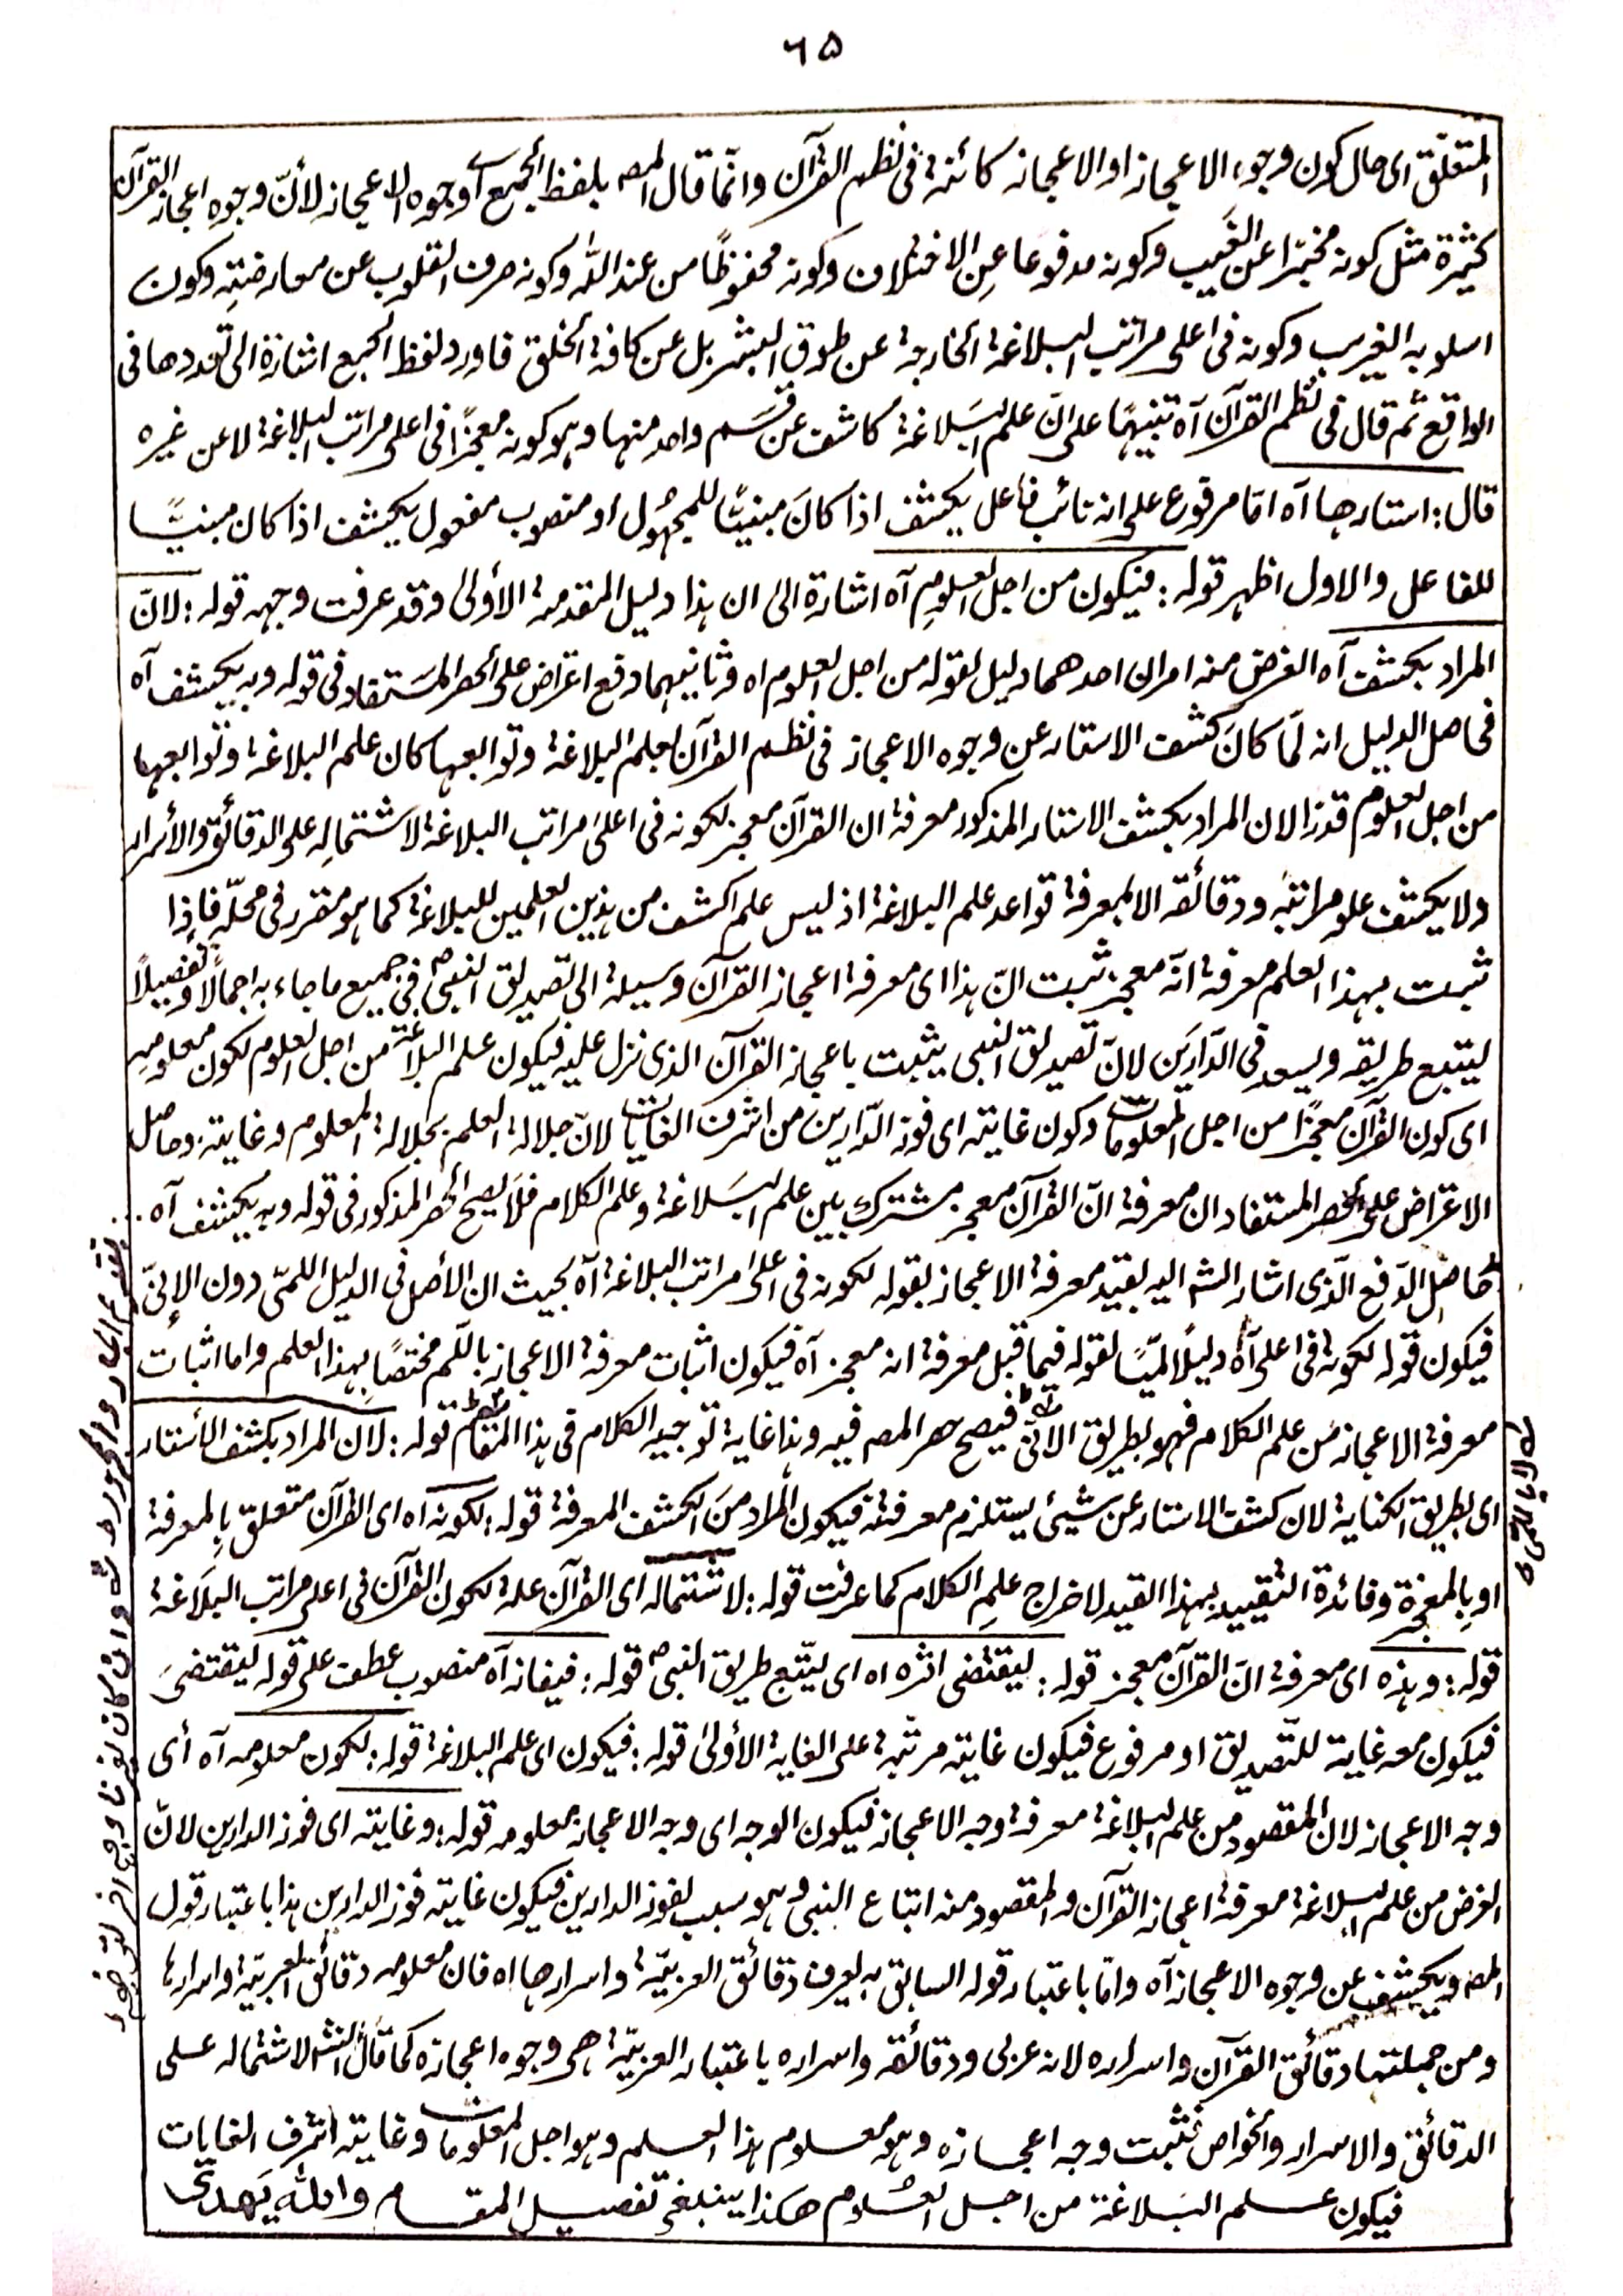 ٦٥
المتعلق اى حال كون وجوه الاعجاز او الاعجاز كائنة فى نظم القرآن وانّما قال المصـ بلفظ الجمع اى وجوه الاعجاز لأنّ وجوه اعجاز القرآن
كثيرة مثل كونه مخبرًا عن الغَيب وكونه مدفوعا عنِ الاختلاف وكونه محفوظًا من عند اللّٰه وكونه صرف القلوب عن معارضتِه وكون
اسلوبه الغريب وكونه فى اعلى مراتب البلاغة الخارجة عن طوق البشر بل عن كافة الخلق فاورد لفظ الجمع اشارة الى تعددها فى
الواقع ثم قال فى نظم القرآن آه تنبيهًا على انّ علم البَلاغة كاشف عن قسَم واحد منها وهو كونه معجزًا فى اعلى مراتب البلاغة لا عن غيره
قال: استارها آه امّا مرفوع على انه نائب فاعل يكشف اذا كانَ مبنيًّا للمجهُول او منصوب مفعول يكشف اذا كان مبنيًّا
للفاعل والاول اظهر قوله: فيكون من اجل العلومِ آه اشارة الى ان هذا دليل المقدمة الأولى وقد عرفت وجهه قوله: لانّ
المراد بكشف آه الغرض منه امران احدهما دليل لقوله من اجل العلوم اه وثانيهما دفع اعتراض على الحصر المستفاد فى قوله وبه يكشف آه
فحاصل الدليل انه لَما كانَ كشف الاستار عن وجوه الاعجاز فى نظم القرآن لعلم البلاغة وتوابعها كان علم البلاغة وتوابعها
من اجل العلوم قدرا لان المراد بكشف الاستار المذكور معرفة ان القرآن معجز لكونه فى اعلىٰ مراتب البلاغة لاشتمالِه على الدقائق والأسرار
ولا يكشف علو مراتبه ودقائقه الا بمعرفة قواعد علم البلاغة اذ ليس علم اكشف من هذين العلمين للبلاغة كما هو مقرر فى محلّه فإذا
ثبت بهذا العلم معرفة انّه معجز ثبت انّ هذا اى معرفة اعجاز القرآن وسيلة الى تصديق النبىؐ فى جميع ما جاء به اجمالًا وتفصيلًا
ليتبع طريقه ويسعد فى الدّارين لانّ تصديق النبى يثبت باعجاز القرآن الذى نزل عليه فيكون علم البلاغة من اجل العلوم لكون معلومه
اى كون القرآن معجزًا من اجل المعلومات وكون غايته اى فوز الدّارين من اشرف الغايات لانّ جلالة العلم بجلالة المعلوم وغايته، وحاصل
الاعتراض على الحصر المستفاد ان معرفة انّ القرآن معجز مشترك بين علم البَلاغة وعلم الكلام فلَا يصح الحصر المذكور فى قوله وبه يكشف آه
حاصل الدّفع الّذى اشار الشـ اليه بقيد معرفة الاعجاز بقوله لكونه فى اعلىٰ مراتب البلاغة آه بحيث ان الأصل فى الدليل اللمّى دون الإنّى
فيكون قوله لكونه فى اعلى آه دليلًا لمّيًا لقوله فيما قبل معرفة انه معجز آه فيكون اثبات معرفة الاعجاز باللّم مختصًا بهذا العلم واما اثبات
معرفة الاعجاز من علم الكلام فهو بطريق الانّى فيصح حصر المصـ فيه وهذا غاية توجيه الكلام فى هذا المقام قوله: لان المراد بكشف الأستار
اى بطريق الكناية لان كشف الاستار عن شيئ يستلزم معرفته فيكون المراد منَ الكشف المعرفة قوله: لكونه اه اى القرآن متعلق بِالمعرفة
او بِالمعجزة وفائدة التقييد بهذا القيد لاخراج علمِ الكلام كما عرفت قوله: لاشتماله اى القرآن علة لكون القرآن فى اعلى مراتب البلَاغة
قوله: وهذه اى معرفة انّ القرآن معجز قوله: ليقتضى اثره اه اى يتّبع طريق النبىؐ قوله: فيفاز آه منصوب عطف على قوله ليقتضىَ
فيكون معه غاية للتّصديق او مرفوع فيكون غايته مرتّبة على الغاية الأولىٰ قوله: فيكون اى علم البلاغة قوله: لكون معلومه آه أى
وجه الاعجاز لان المقصود من علم البلاغة معرفة وجه الاعجاز فيكون الوجه اى وجه الاعجاز معلومه قوله: وغايته اى فوز الدارين لانّ
الغرض من علم البلاغة معرفة اعجاز القرآن والمقصود منه اتباع النبى وهو سبب لفوز الدارين فيكون غايته فوز الدارين هذا باعتبار قول
المصـ ويكشف عن وجوه الاعجاز آه وامّا باعتبار قوله السابق به يعرف دقائق العربيّة واسرارها اه فان معلومه دقائق العربيّة واسرارها
ومن جملتها دقائق القرآن واسراره لانه عربى ودقائقه واسراره باعتبار العربيّة هى وجوه اعجازه كما قال الشـ لاشتماله على
الدقائق والاسرار والخواص فثبت وجه اعجازه وهو معلوم هذا العلم وهو اجل المعلومات وغايته اشرف الغايات
فيكون علم البَلاغة من اجل العُلوم هكذا ينبغى تفصيل المقام واللّٰه يَهدى